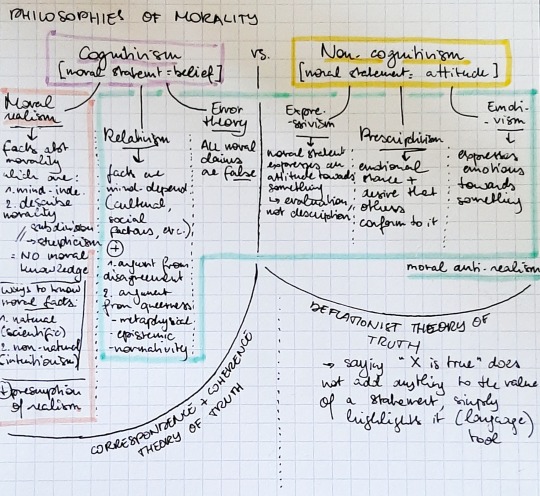 PHILOSOPHIES OF MORALITY
Cognitivism
[moral statement = belief]
vs.
Non-cognitivism
[moral statement = attitude]
Moral
realism
facts abt
morality
which are:
1. mind-inde.
2. describe
morality
// subdivision
→ skepticism
= NO moral
knowledge
ways to know
moral facts
1. natural
(scientific)
2. non-natural
(intuitionism)
(+) presumption
of realism
Relativism
facts are
mind-depend
(cultural,
social
factors, etc.)
(+)
1. argumt from
disagreement
2. argumet
from queerness
- metaphysical
- epistemic
- normativity
Error
theory
All moral
claims
are false
Expre-
ssivism
moral statemt
expresses an
attitude towards
something
↳ evaluation,
not description
Prescriptivism
emotional
stance +
desire that
others
conform to it
Emoti-
vism
expresses
emotions
towards
something
moral anti-realism
CORRESPONDENCE + COHERENCE
THEORY OF TRUTH
DEFLATIONIST THEORY OF
TRUTH
→ saying "X is true" does
not add anything to the value
of a statement, simply
highlights it (language)
tool